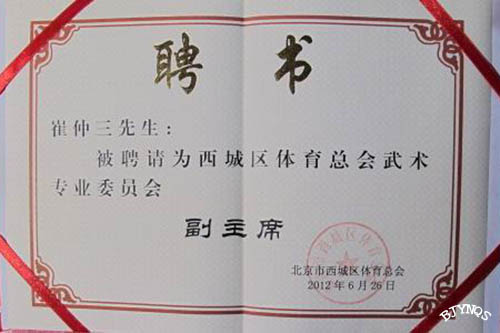 聘书
崔仲三先生：
被聘请为西城区体育总会武术
专业委员会
副主席
北京市西城区体育总会
2012年6月26日
BJYNQS